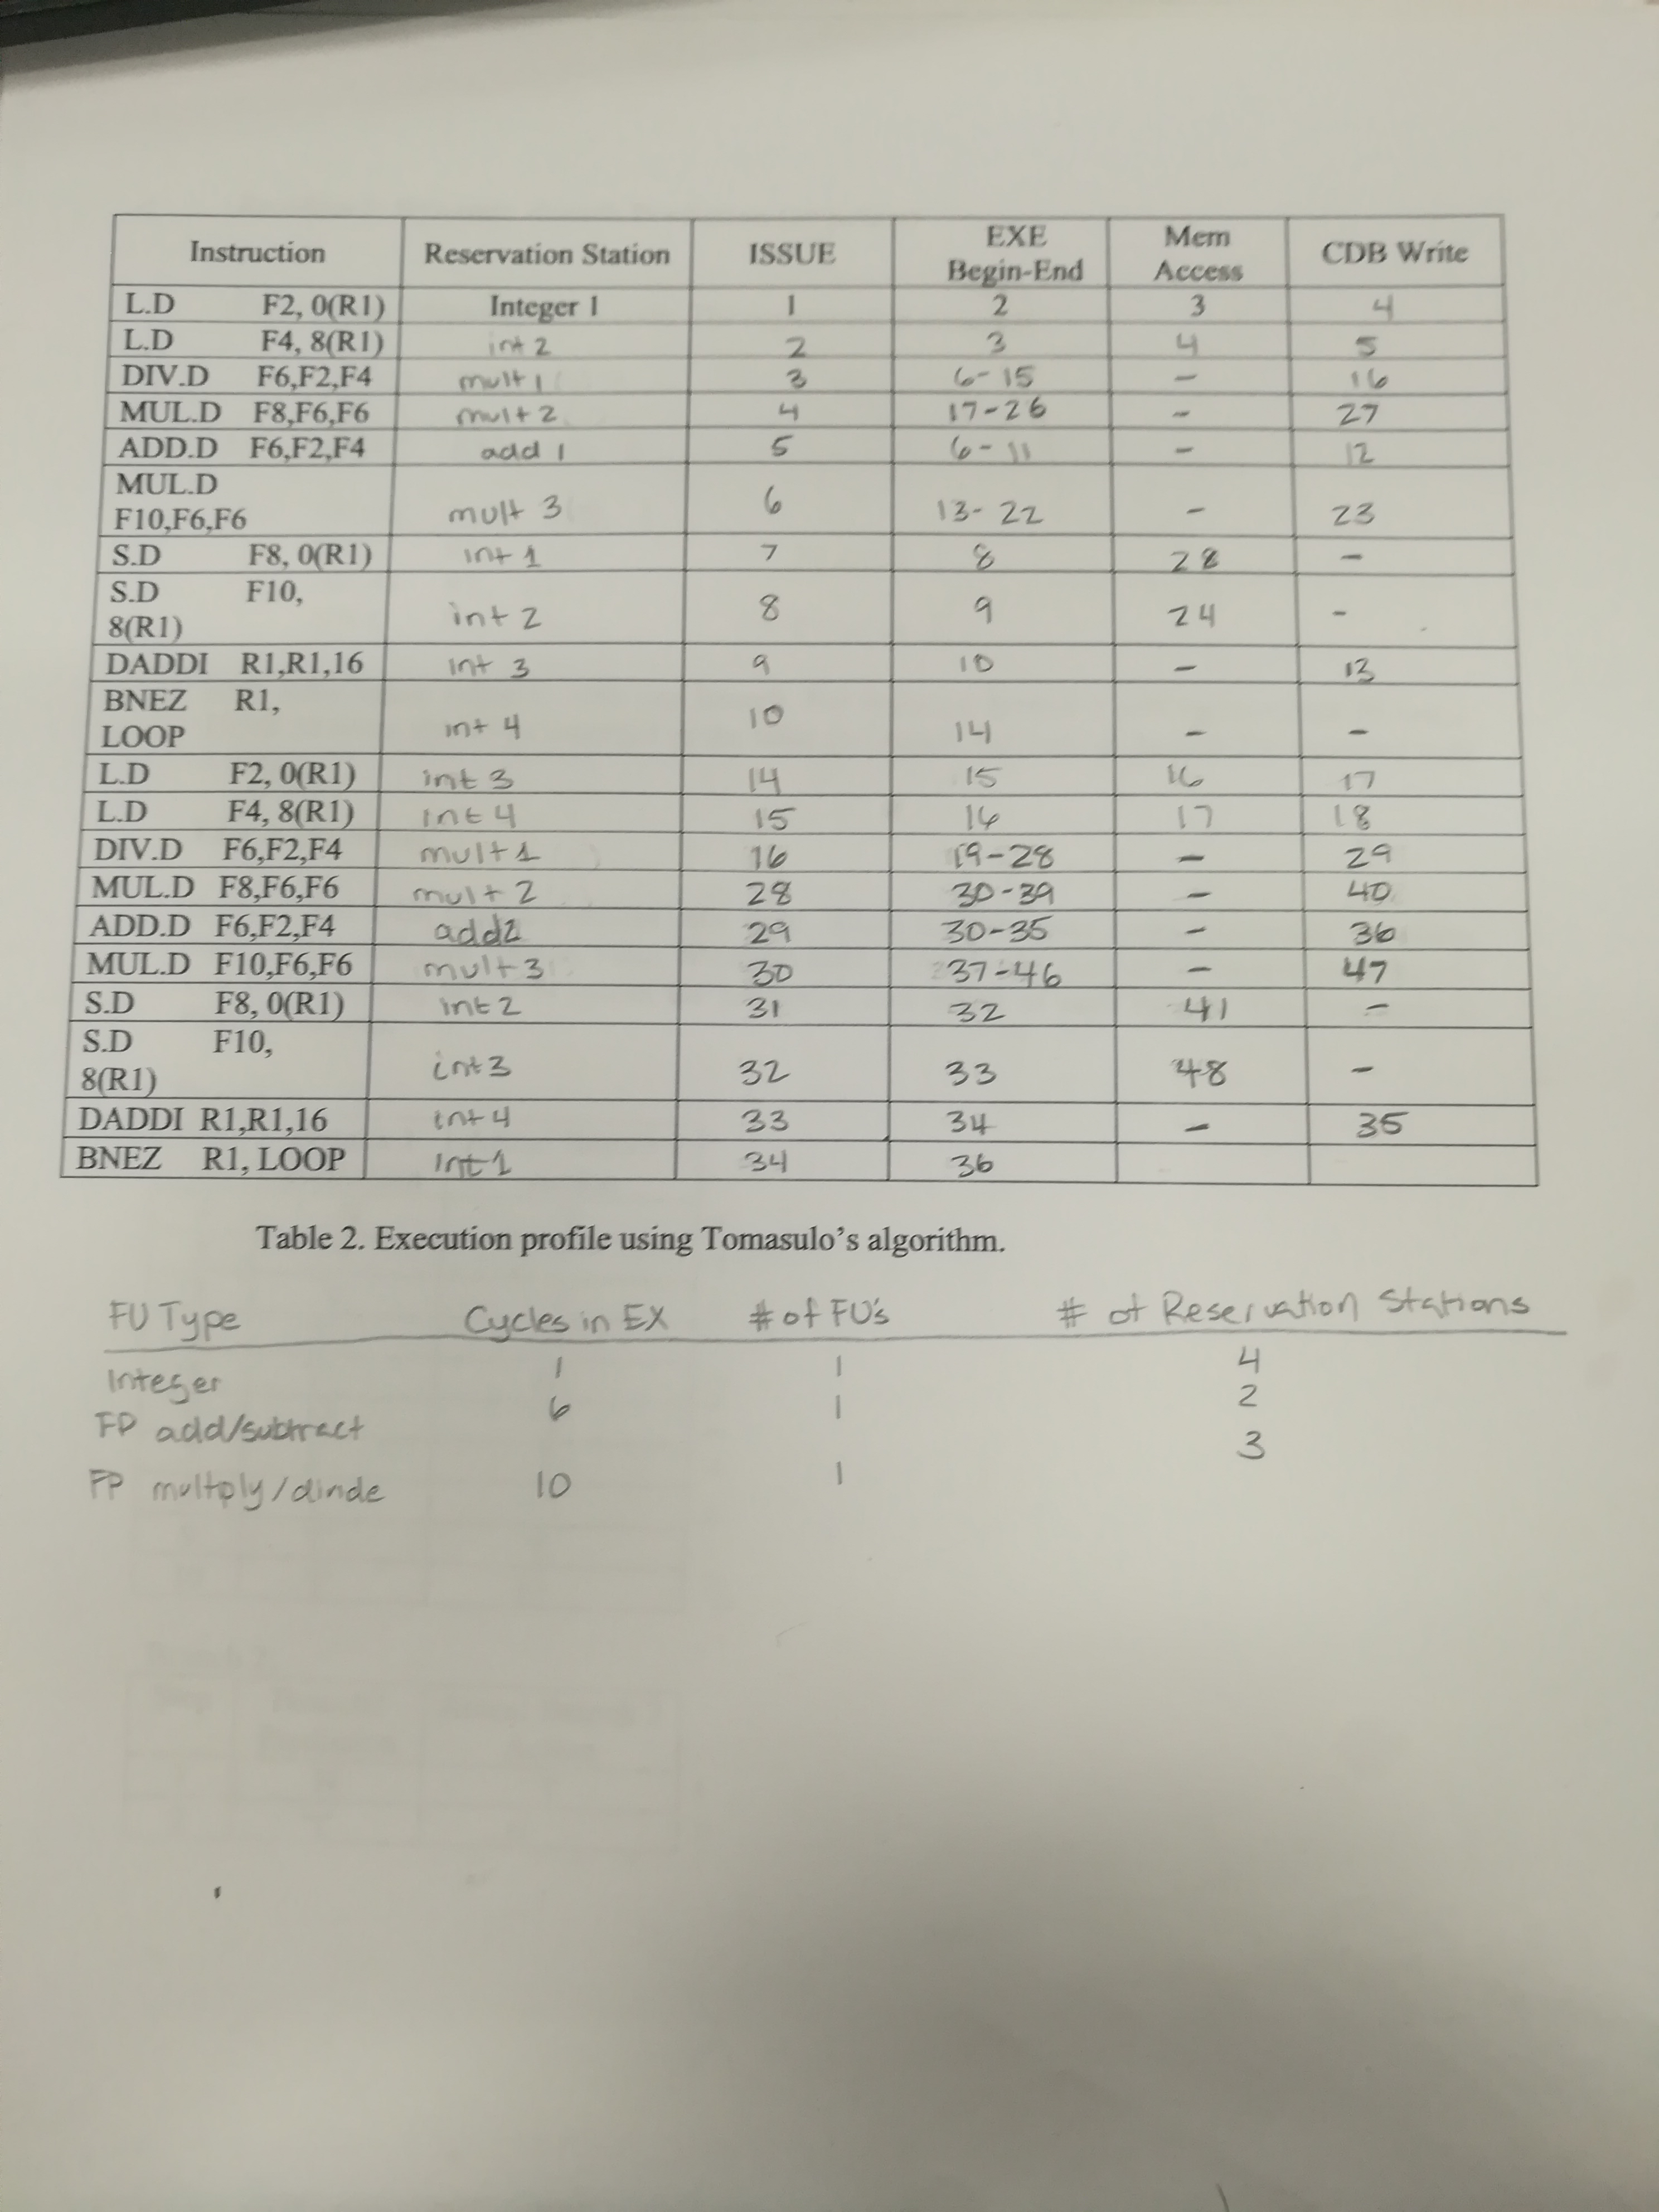 Instruction Reservation Station ISSUE EXE Begin-End Mem Access CDB Write
L.D F2, 0(R1) Integer 1 1 2 3 4
L.D F4, 8(R1) int 2 2 3 4 5
DIV.D F6,F2,F4 mult 1 3 6-15 - 16
MUL.D F8,F6,F6 mult 2 4 17-26 - 27
ADD.D F6,F2,F4 add 1 5 6-11 - 12
MUL.D F10,F6,F6 mult 3 6 13-22 - 23
S.D F8, 0(R1) int 1 7 8 28 -
S.D F10, 8(R1) int 2 8 9 24 -
DADDI R1,R1,16 int 3 9 10 - 13
BNEZ R1, LOOP int 4 10 14 - -
L.D F2, 0(R1) int 3 14 15 16 17
L.D F4, 8(R1) int 4 15 16 17 18
DIV.D F6,F2,F4 mult 1 16 19-28 - 29
MUL.D F8,F6,F6 mult 2 28 30-39 - 40
ADD.D F6,F2,F4 add2 29 30-35 - 36
MUL.D F10,F6,F6 mult 3 30 37-46 - 47
S.D F8, 0(R1) int 2 31 32 41 -
S.D F10, 8(R1) int 3 32 33 48 -
DADDI R1,R1,16 int 4 33 34 - 35
BNEZ R1, LOOP Int 1 34 36
Table 2. Execution profile using Tomasulo's algorithm.
FU Type Cycles in EX # of FU's # of Reservation Stations
Integer 1 1 4
FP add/subtract 6 1 2
FP multply/divide 10 1 3